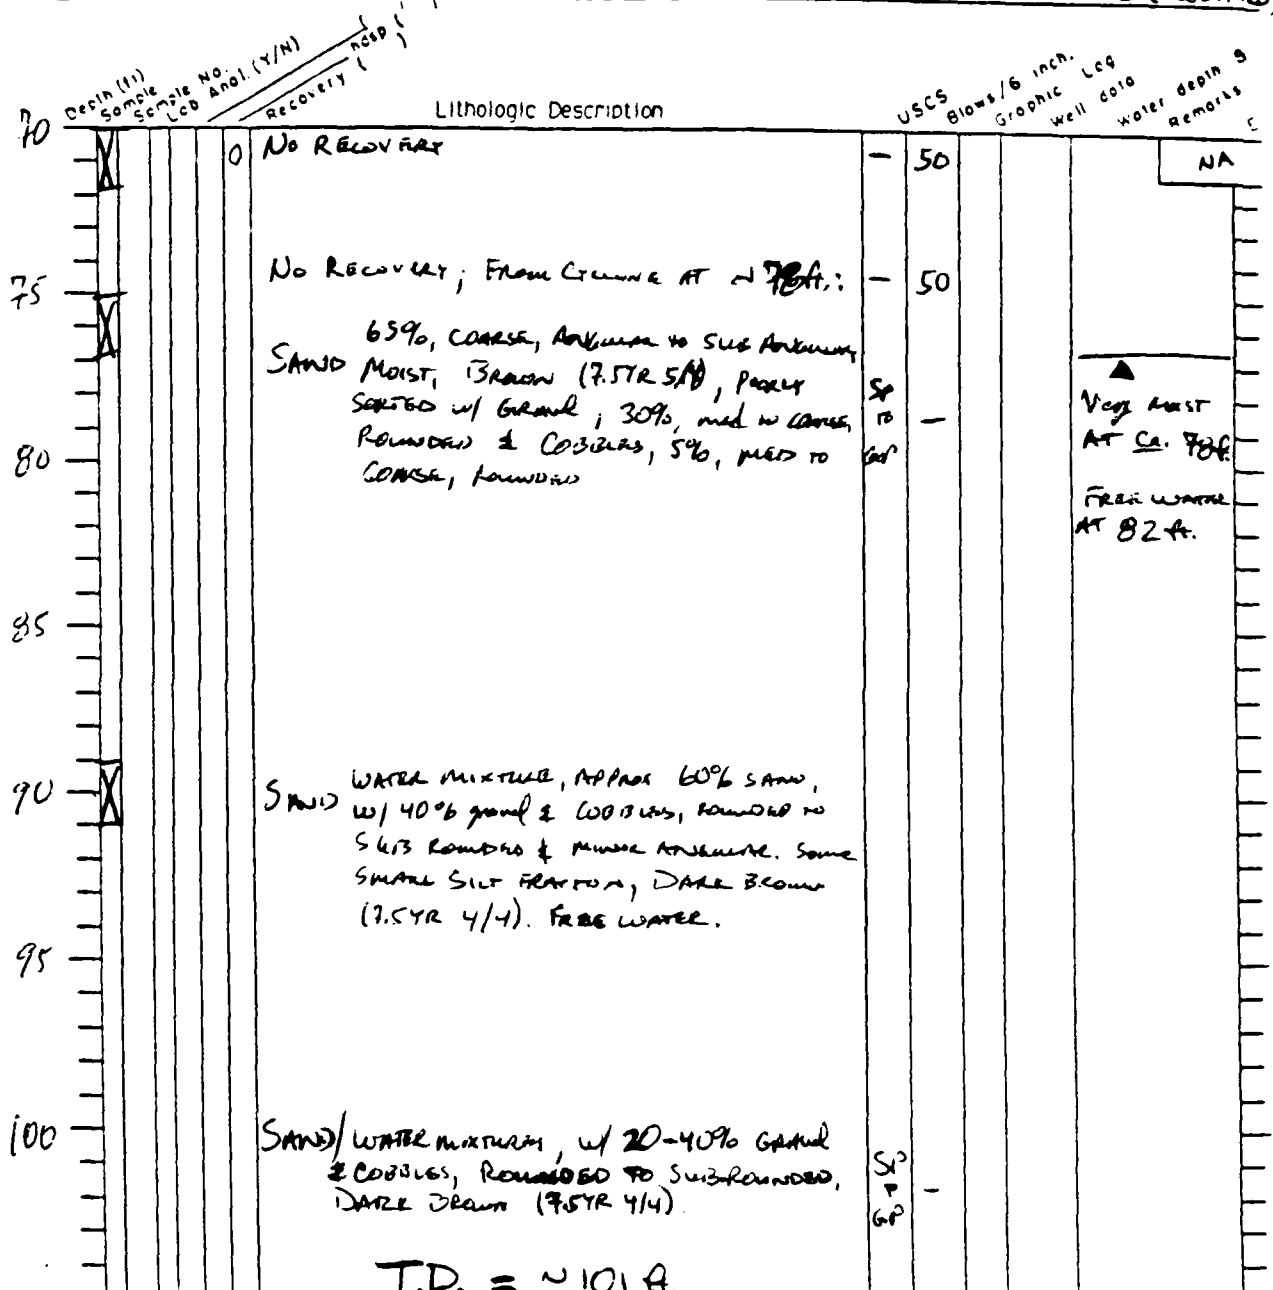 Depth (ft)
Sample
Sample No.
Lab Anal. (Y/N)
Recovery ( )
Lithologic Description
USCS
Blows/6 inch.
Graphic Log
Well data
Water depth &
Remarks
70
0 No RECOVERY - 50 NA
75
No RECOVERY; FROM CYCLONE AT ~ 78ft.: - 50
65%, COARSE, ANGULAR to SUB ANGULAR,
SAND MOIST, BROWN (7.5YR , POORLY
SORTED w/ GRAVEL; 30%, med to COARSE,
ROUNDED & COBBLES, 5%, MED TO
COARSE, ROUNDED
SP
TO -
GP
Very MOIST
AT Ca. 78ft.
FREE WATER
AT 82 ft.
80
85
90
SAND WATER MIXTURE, APPROX 60% SAND,
w/ 40% gravel & COBBLES, ROUNDED TO
SUB ROUNDED & MINOR ANGULAR. Some
SMALL SILT FRACTION, DARK BROWN
(7.5YR 4/4). FREE WATER.
95
100
SAND/WATER MIXTURES, w/ 20-40% GRAVEL
& COBBLES, ROUNDED TO SUB-ROUNDED,
DARK BROWN (7.5YR 4/4)
SP
GP -
T.D. = ~101 ft.